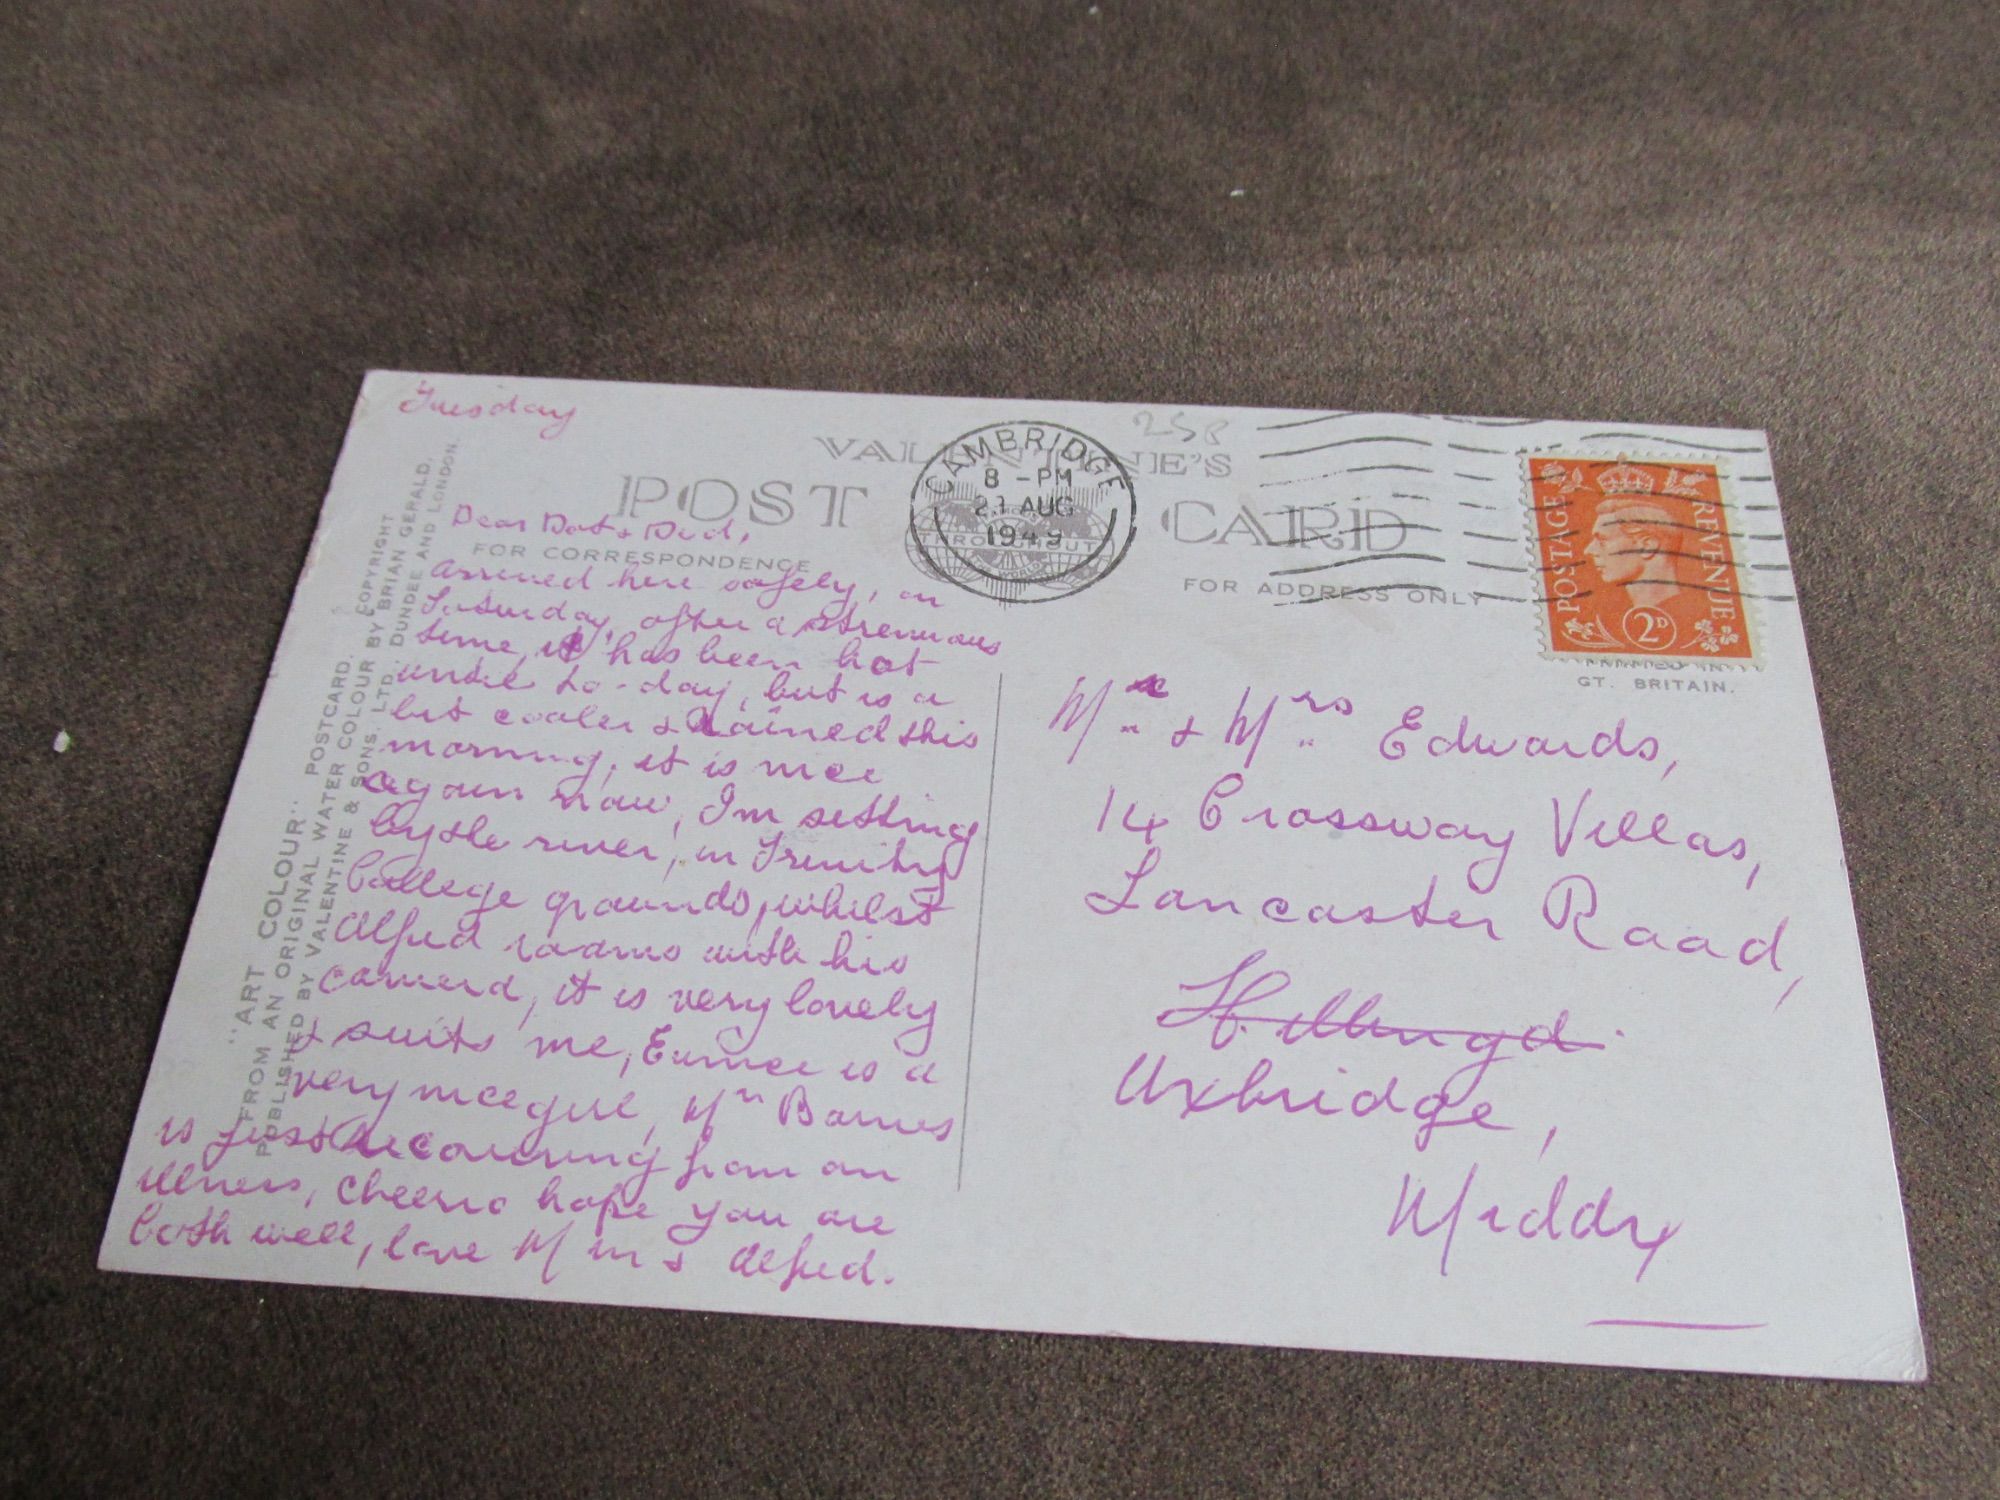 Tuesday
258
VALENTINE'S
POST CARD
CAMBRIDGE
8 - PM
AUG
1949
POSTAGE REVENUE
2D
FOR CORRESPONDENCE
FOR ADDRESS ONLY
PRINTED IN
GT. BRITAIN.
"ART COLOUR" POSTCARD. COPYRIGHT
FROM AN ORIGINAL WATER COLOUR BY BRIAN GERALD,
PUBLISHED BY VALENTINE & SONS, LTD. DUNDEE AND LONDON.
Dear Dot & Did,
arrived here safely, on
Saturday, after a strenuous
time, it has been hot
until to-day, but is a
bit cooler & rained this
morning, it is nice
again now, I'm setting
by the river, in Trinity
College grounds, whilst
Alfred roams with his
camera, it is very lovely
& suits me, Eunice is a
very nice girl, Barnes
is just recovering from an
illness, cheerio hope you are
both well, love & Alfred.
Mr & Mrs Edwards,
14 Crossway Villas,
Lancaster Road,
Uxbridge,
Middx